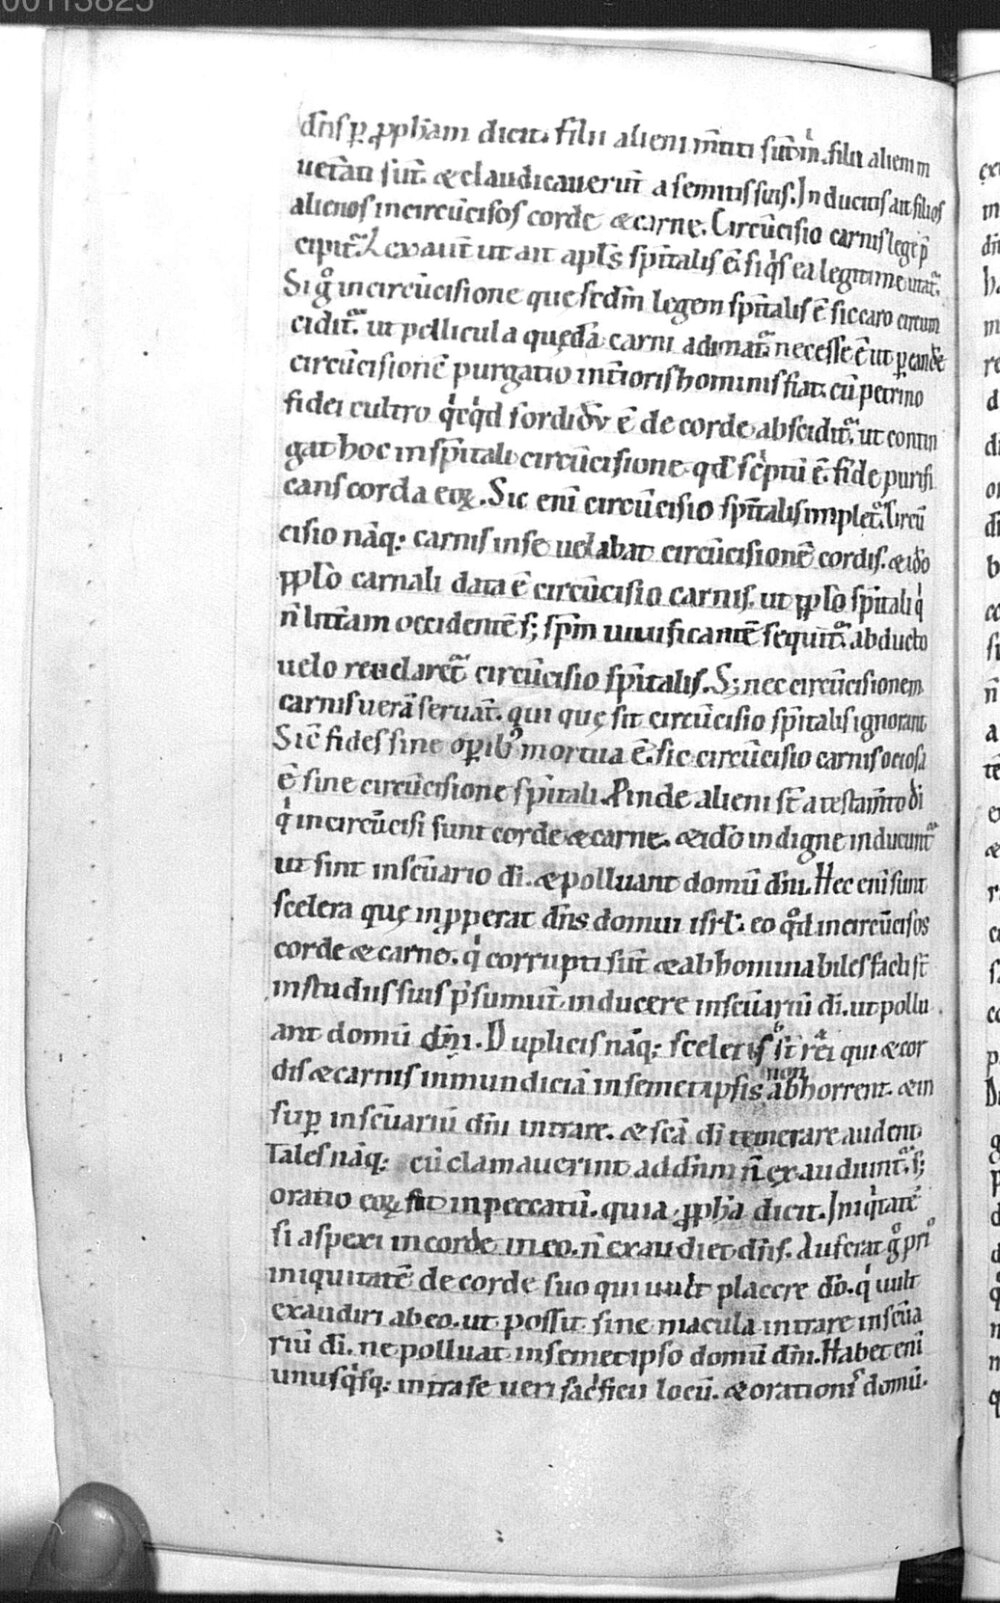 00113825
dn̄s ꝑ ꝓph̄am dicit. filii alieni m̄titi sūt m̄. filii alieni in
uet̄ati sūt. & claudicauerūt a semitis suis. Inducitis ait filios
alienos incircūcisos corde & carne. Circūcisio carnis lege p̄
cipit᷑. Lex aut̄ ut ait apl̄s sp̄italis ē si qͥs ea legitime utat᷑.
Si gͦ in circūcisione que scd̄m legem sp̄italis ē sic caro circum
cidit᷑. ut pellicula quędā carni adimat᷑ necesse ē ut ꝑ eandē
circūcisionē purgatio int̄ioris hominis fiat. cū petrino
fidei cultro qͥcqͥd sordidū ē de corde abscidit᷑. ut contin
gat hoc in sp̄itali circūcisione qd̄ scͥptū ē. fide purifi
cans corda eoꝝ. Sic enī circūcisio sp̄italis implet᷑. Circū
cisio nāq; carnis in se uelabat circūcisionē cordis. & idō
ppl̄o carnali data ē circūcisio carnis. ut ppl̄o sp̄itali qͥ
n̄ litt̄am occidentē s; sp̄m uiuificantē sequit᷑. abducto
uelo reuelaret᷑ circūcisio sp̄italis. S; nec circūcisionem
carnis uerā seruāt. qui quę sit circūcisio sp̄italis ignorant
Sic̄ fides sine oꝑib᷒ mortua ē. sic circūcisio carnis ociosa
ē sine circūcisione sp̄itali. Proinde alieni st̄ a testam̄to di
qͥ incircūcisi sunt corde & carne. & idō indigne inducunt᷑
ut sint in scūario dī. & polluant domū dn̄i. Hec enī sunt
scelera quę inꝓperat dn̄s domui isrl̄. eo qd̄ incircūcisos
corde & carne. qͥ corrupti sūt & abhominabiles facti st̄
in studiis suis p̄sumūt inducere in scūariū dī. ut pollu
ant domū dn̄i. Duplicis nāq; sceleris st̄ rei qui & cor
dis & carnis inmundiciā in semetipsis non abhorrent. & in
suꝑ in scūariū dn̄i intrare. & scā dī temerare audent
Tales nāq; cū clamauerint ad dn̄m n̄ exaudiunt᷑. s;
oratio eoꝝ fit in peccatū. quia ꝓph̄a dicit. Iniqͥtatē
si aspexi in corde meo. n̄ exaudiet dn̄s. Auferat gͦ priͦ
iniquitatē de corde suo qui uult placere dō. qͥ uult
exaudiri ab eo. ut possit sine macula intrare in scūa
riū dī. ne polluat in semetipso domū dn̄i. Habet enī
unusqͥsq; intra se ueri sacͥficii locū. & orationis domū.